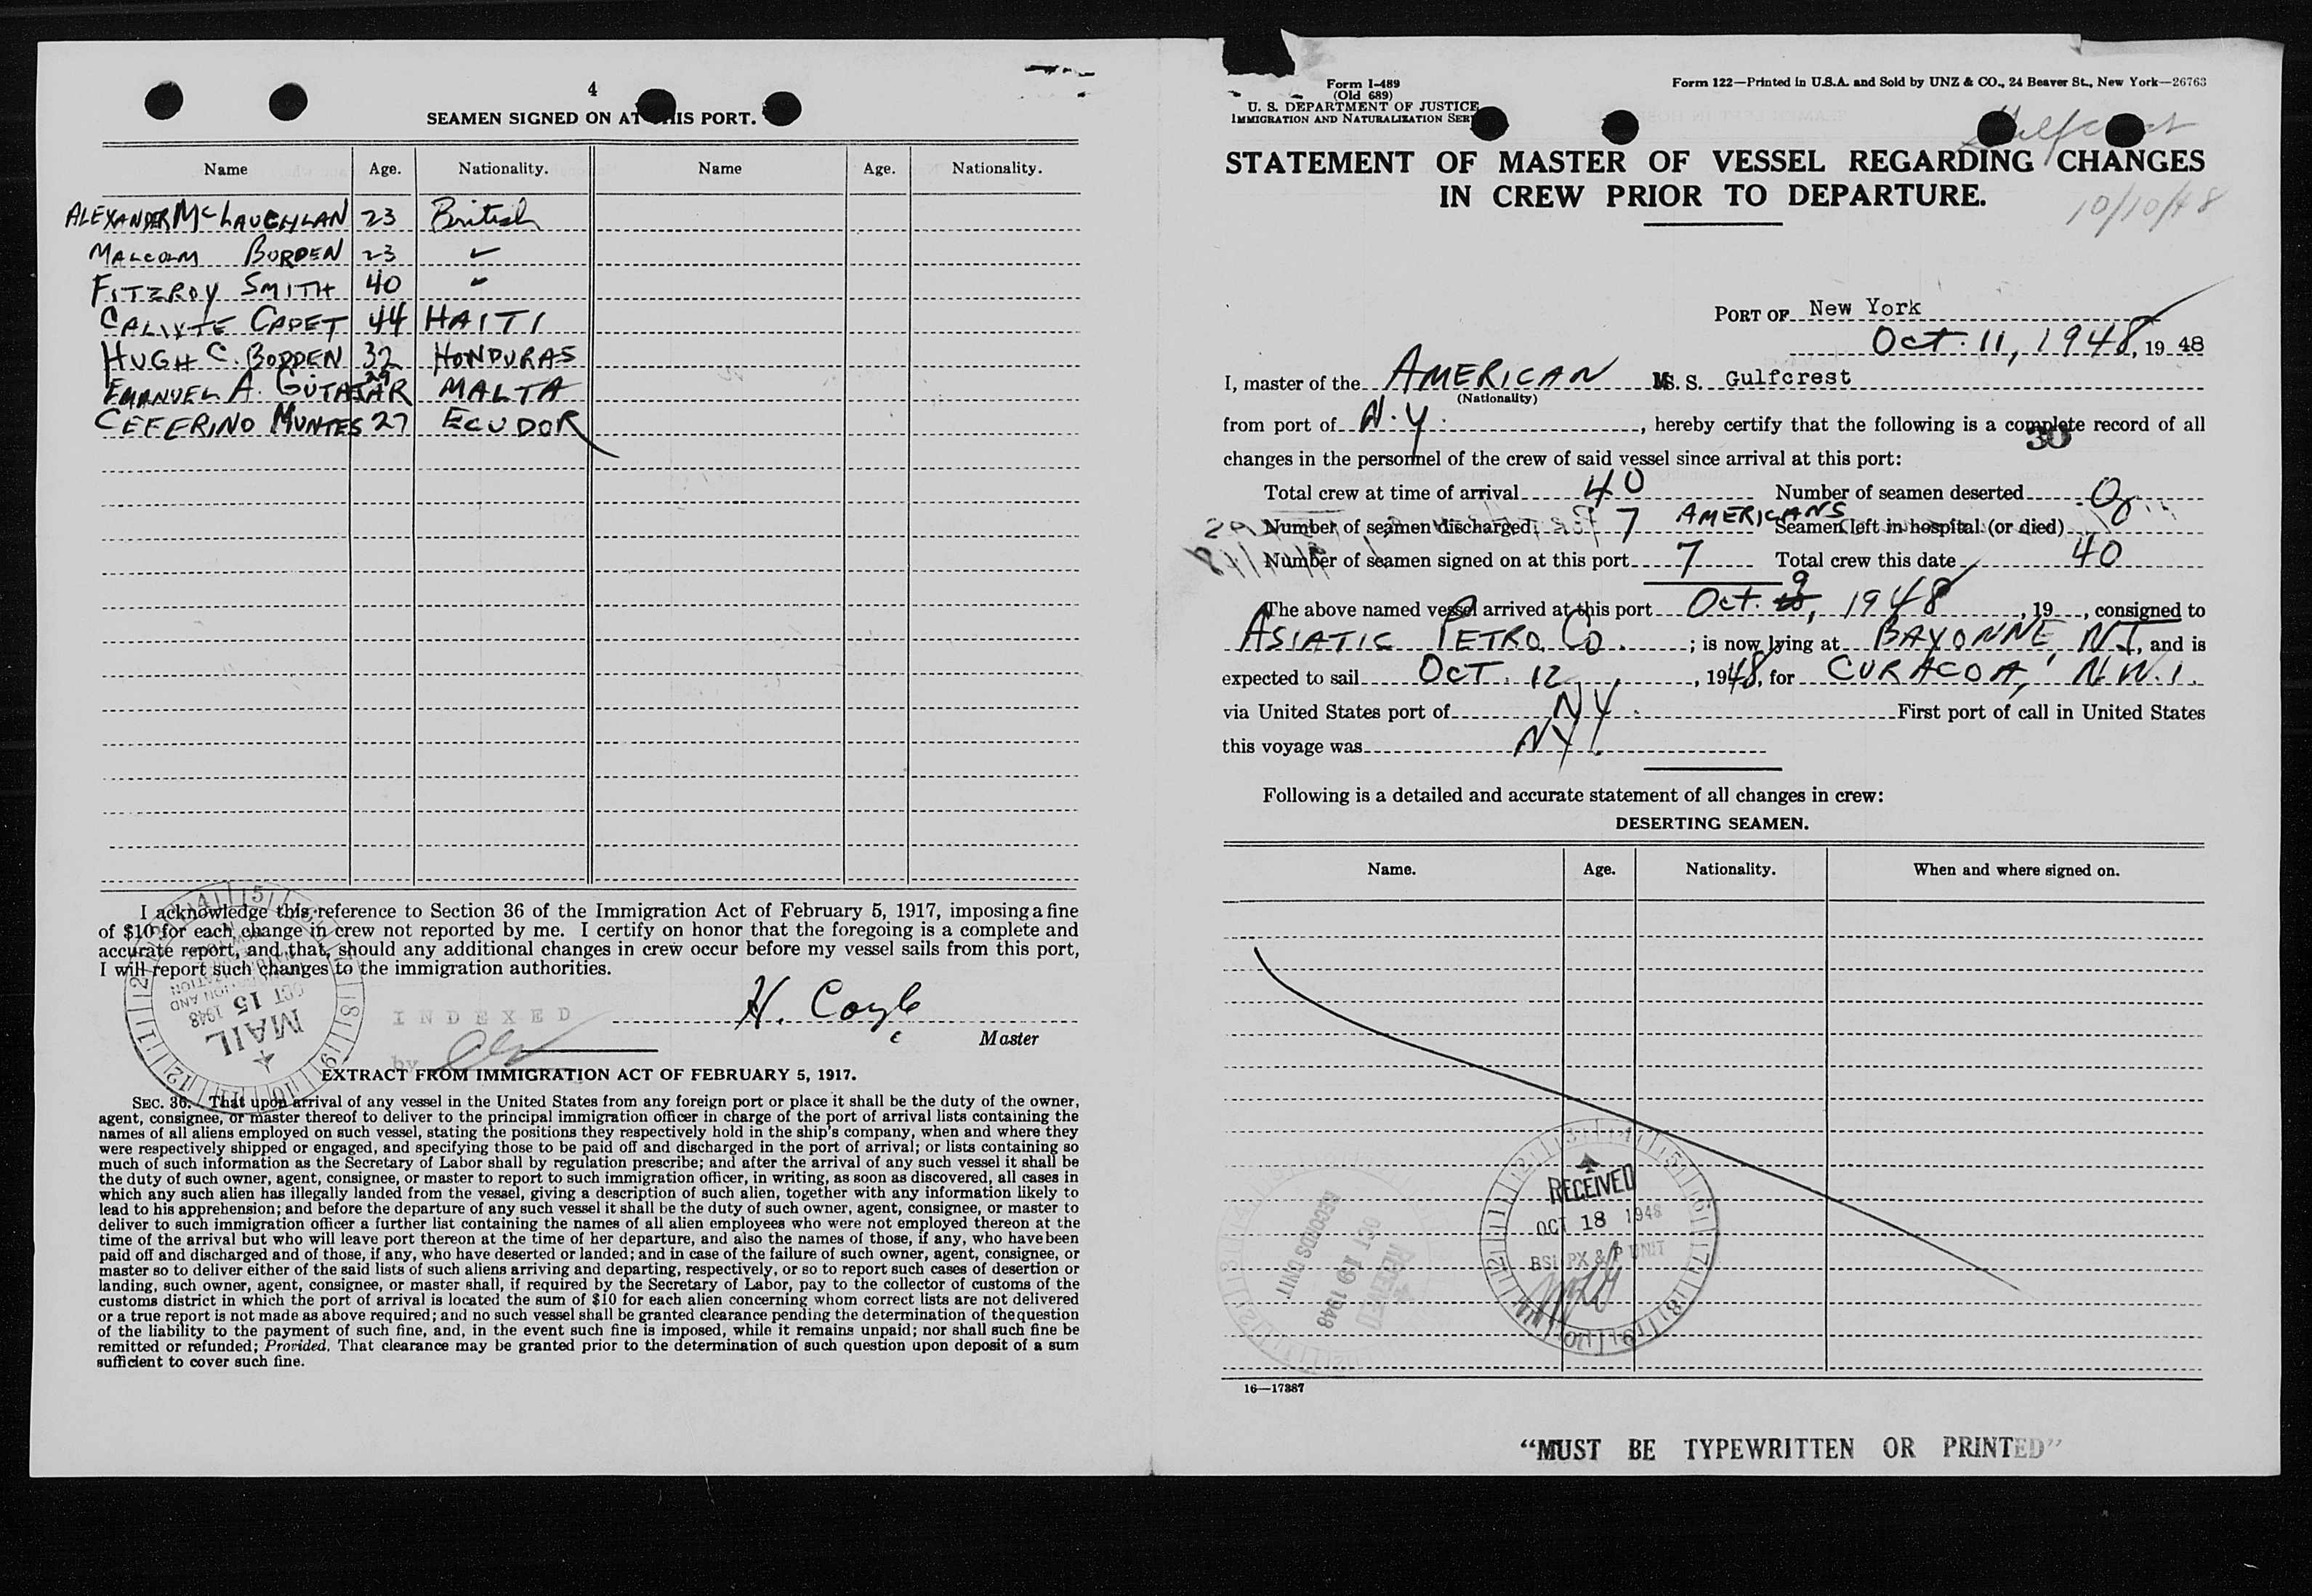 4
SEAMEN SIGNED ON AT THIS PORT.
Name Age. Nationality. Name Age. Nationality.
ALEXANDER McLAUGHLAN 23 British
MALCOLM BORDEN 23 ✓
FITZROY SMITH 40 ✓
CALIXTE CADET 44 HAITI
HUGH C. BORDEN 32 HONDURAS
EMANUEL A. GUTAJAR 29 MALTA
CEFERINO MUNTES 27 ECUDOR
I acknowledge this reference to Section 36 of the Immigration Act of February 5, 1917, imposing a fine
of $10 for each change in crew not reported by me. I certify on honor that the foregoing is a complete and
accurate report, and that, should any additional changes in crew occur before my vessel sails from this port,
I will report such changes to the immigration authorities.
IMMIGRATION AND
NATURALIZATION
OCT 15 1948
MAIL
INDEXED
by
H. Coyle
Master
EXTRACT FROM IMMIGRATION ACT OF FEBRUARY 5, 1917.
SEC. 36. That upon arrival of any vessel in the United States from any foreign port or place it shall be the duty of the owner,
agent, consignee, or master thereof to deliver to the principal immigration officer in charge of the port of arrival lists containing the
names of all aliens employed on such vessel, stating the positions they respectively hold in the ship's company, when and where they
were respectively shipped or engaged, and specifying those to be paid off and discharged in the port of arrival; or lists containing so
much of such information as the Secretary of Labor shall by regulation prescribe; and after the arrival of any such vessel it shall be
the duty of such owner, agent, consignee, or master to report to such immigration officer, in writing, as soon as discovered, all cases in
which any such alien has illegally landed from the vessel, giving a description of such alien, together with any information likely to
lead to his apprehension; and before the departure of any such vessel it shall be the duty of such owner, agent, consignee, or master to
deliver to such immigration officer a further list containing the names of all alien employees who were not employed thereon at the
time of the arrival but who will leave port thereon at the time of her departure, and also the names of those, if any, who have been
paid off and discharged and of those, if any, who have deserted or landed; and in case of the failure of such owner, agent, consignee, or
master so to deliver either of the said lists of such aliens arriving and departing, respectively, or so to report such cases of desertion or
landing, such owner, agent, consignee, or master shall, if required by the Secretary of Labor, pay to the collector of customs of the
customs district in which the port of arrival is located the sum of $10 for each alien concerning whom correct lists are not delivered
or a true report is not made as above required; and no such vessel shall be granted clearance pending the determination of the question
of the liability to the payment of such fine, and, in the event such fine is imposed, while it remains unpaid; nor shall such fine be
remitted or refunded; Provided, That clearance may be granted prior to the determination of such question upon deposit of a sum
sufficient to cover such fine.
Form I-489
(Old 689)
U. S. DEPARTMENT OF JUSTICE
IMMIGRATION AND NATURALIZATION SER
Form 122—Printed in U.S.A. and Sold by UNZ & CO., 24 Beaver St., New York—26763
Gulfcrest
STATEMENT OF MASTER OF VESSEL REGARDING CHANGES
IN CREW PRIOR TO DEPARTURE.
10/10/48
PORT OF New York
Oct. 11, 1948, 19 48
I, master of the AMERICAN MS. S. Gulfcrest
(Nationality)
from port of N.Y., hereby certify that the following is a complete record of all
30
changes in the personnel of the crew of said vessel since arrival at this port:
Total crew at time of arrival 40 Number of seamen deserted 0
Number of seamen discharged 7 AMERICANS Seamen left in hospital (or died) 0
Number of seamen signed on at this port 7 Total crew this date 40
The above named vessel arrived at this port Oct. 9, 1948, 19 , consigned to
ASIATIC PETRO. CO. ; is now lying at BAYONNE, N.J., and is
expected to sail OCT. 12, 1948, for CURACOA, N.W.I.
via United States port of NY. First port of call in United States
this voyage was NY.
Following is a detailed and accurate statement of all changes in crew:
DESERTING SEAMEN.
Name. Age. Nationality. When and where signed on.
RECEIVED
OCT 18 1948
BSI PX & P UNIT
RECEIVED
OCT 19 1948
RECORDS UNIT
16—17387
"MUST BE TYPEWRITTEN OR PRINTED"